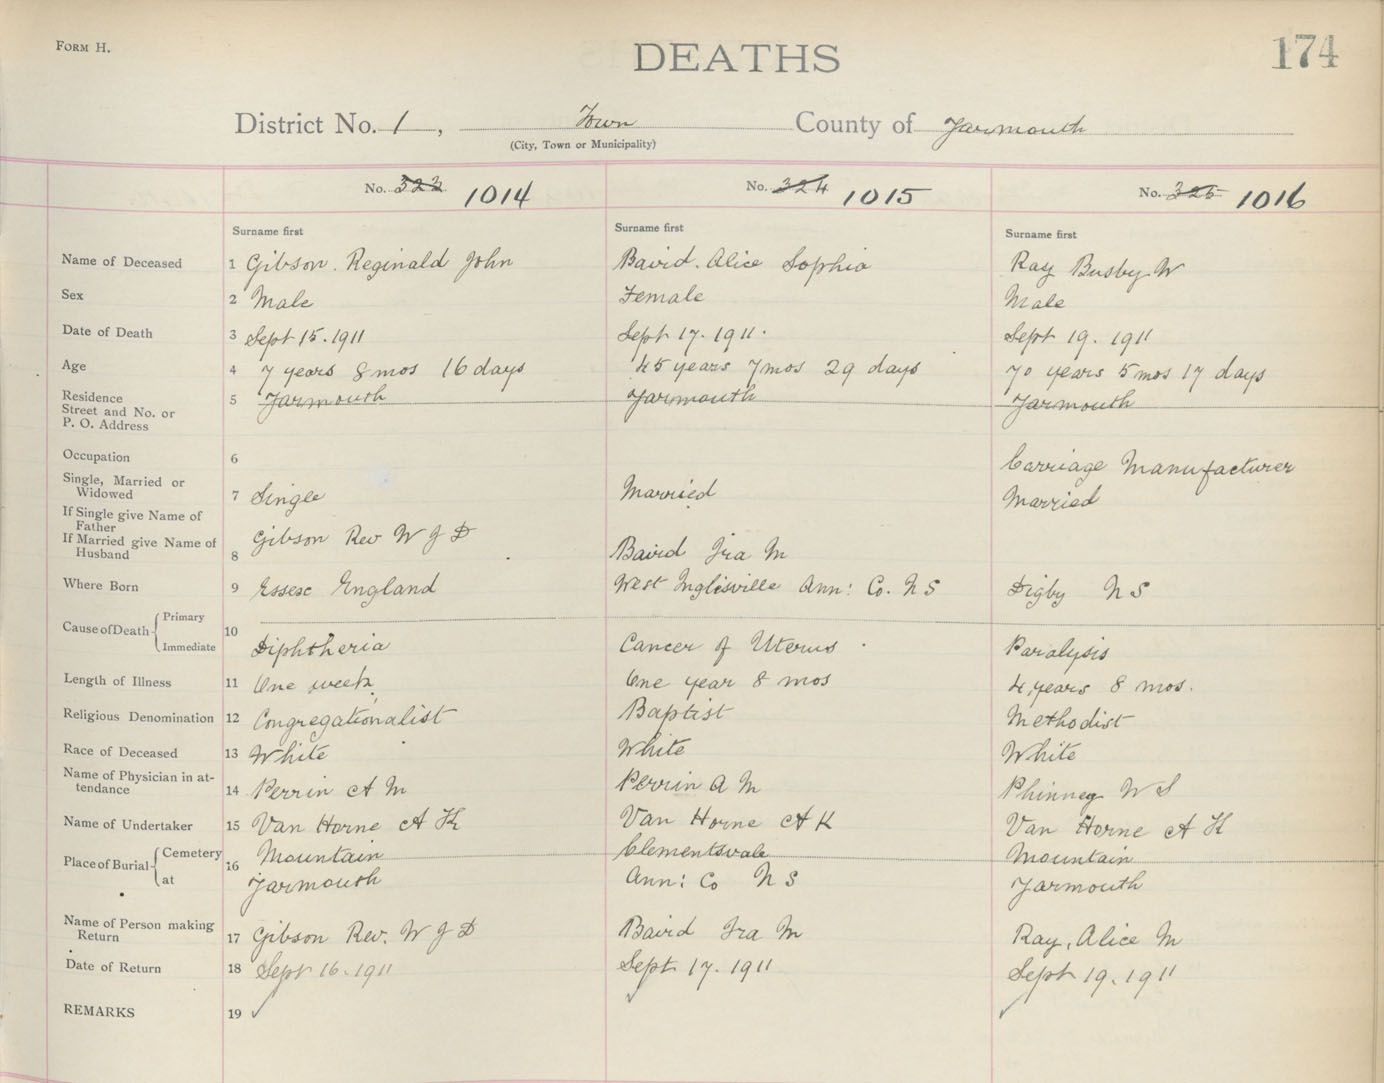 FORM H.
DEATHS
174
District No. 1, Town County of Yarmouth
(City, Town or Municipality)
No. 323 1014 No. 324 1015 No. 325 1016
Surname first Surname first Surname first
Name of Deceased 1 Gibson. Reginald John Baird. Alice Sophia Ray Busby W
Sex 2 Male Female Male
Date of Death 3 Sept 15. 1911 Sept 17. 1911. Sept 19. 1911
Age 4 7 years 8 mos 16 days 45 years 7 mos 29 days 70 years 5 mos 17 days
Residence
Street and No. or
P. O. Address 5 Yarmouth Yarmouth Yarmouth
Occupation 6 Carriage Manufacturer
Single, Married or
Widowed 7 Single Married Married
If Single give Name of
Father
If Married give Name of
Husband 8 Gibson Rev W J D Baird Ira M
Where Born 9 Essex England West Inglisville Ann: Co. N S Digby N S
Cause of Death Primary
Immediate 10 Diphtheria Cancer of Uterus Paralysis
Length of Illness 11 One week One year 8 mos 4 years 8 mos.
Religious Denomination 12 Congregationalist Baptist Methodist
Race of Deceased 13 White White White
Name of Physician in at-
tendance 14 Perrin A M Perrin A M Phinney W S
Name of Undertaker 15 Van Horne A K Van Horne A K Van Horne A K
Place of Burial Cemetery 16 Mountain Clementsvale Mountain
at Yarmouth Ann: Co N S Yarmouth
Name of Person making
Return 17 Gibson Rev. W J D Baird Ira M Ray, Alice M
Date of Return 18 Sept 16. 1911 Sept 17. 1911 Sept 19. 1911
REMARKS 19 ✓ ✓ ✓